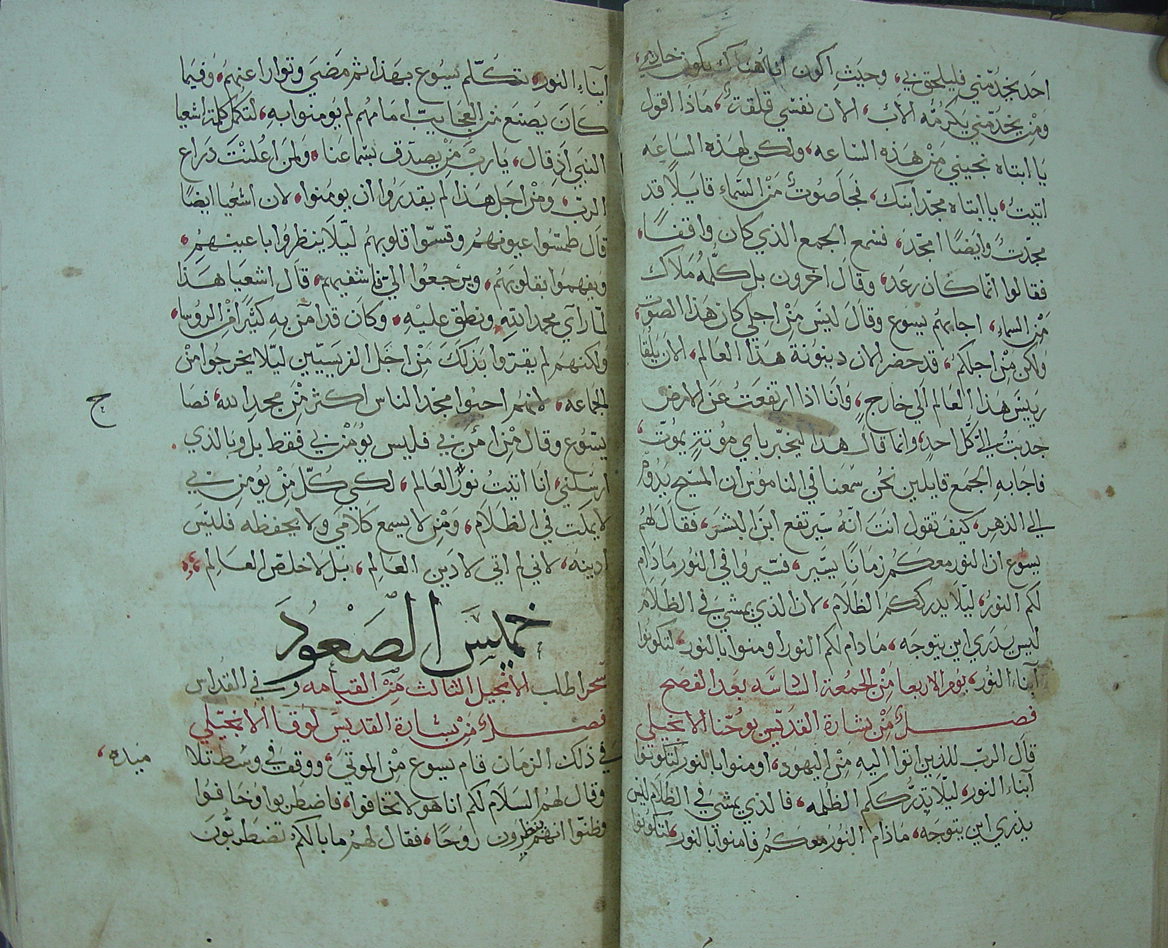 احد يخدمني فليلحق بي، وحيث اكون انا هناك يكون خادمي،
ومن يخدمني يكرمه الاب، الان نفسي قلقة، ماذا اقول
يا ابتاه نجيني من هذه الساعه، ولكن لهذه الساعه
اتيت، يا ابتاه مجد ابنك، فجا صوت من السماء قايلا قد
مجدت وايضا امجد، فسمع الجمع الذي كان واقفا،
فقالوا انما كان رعد، وقال اخرون بل كلمه ملاك
من السماء، اجابهم يسوع وقال ليس من اجلي كان هذا الصوت،
ولكن من اجلكم، قد حضر الان دينونة هذا العالم، الان يلقا
رييس هذا العالم الى خارج، وانا اذا ارتفعت عن الارض
جدبت الي كل احد، وانما قال هذا ليخبر باي موتة يموت،
فاجابه الجمع قايلين نحن سمعنا في الناموس ان المسيح يدوم
الى الدهر، كيف تقول انت انه سيرتفع ابن البشر، فقال لهم
يسوع ان النور معكم زمانا يسير، فسيروا في النور ماذام
لكم النور، ليلا يدرككم الظلام، لان الذي يمشي في الظلام
ليس يدري اين يتوجه، مادام لكم النور اومنوا بالنور لتكونوا
آبناء النور، يوم الاربعا من الجمعة السادسه بعد الفصح
فصل من بشارة القديس يوحنا الانجيلي
قال الرب للذين اتوا اليه من اليهود، اومنوا بالنور لتكونوا
آبناء النور، ليلا يدرككم الظلمه، فالذي يمشي في الظلام ليس
يدري اين يتوجه، ماذام النور معكم فامنوا بالنور، لتكونوا
ابناء النور، تكلم يسوع بهذا ثم مضى وتوارا عنهم، وفيما
كان يصنع من العجايب امامهم لم يومنوا به، لتكمل كلمة اشعيا
النبي اذ قال، يا رب من يصدق بسماعنا، ولمن اعلنت دراع
الرب، ومن اجل هذا لم يقدروا ان يومنوا، لان اشعيا ايضا
قال طمسوا عيونهم وقسوا قلوبهم ليلا ينظروا باعينهم،
ويفهموا بقلوبهم، ويرجعوا الي فاشفيهم، قال اشعيا هذا
لما راي مجد الله ونطق عليه، وكان قد امن به كثيرا من الروسا،
ولكنهم لم يقروا بذلك من اجل الفريسيين ليلا يخرجوا من
الجماعه، لانهم احبوا مجد الناس اكثر من مجد الله، فصا
ج
يسوع وقال من امن بي فليس يومن بي فقط بل وبالذي
ارسلني، انا اتيت نور العالم، لكي كل من يومن بي
لا يمكت في الظلام، ومن لا يسمع كلامي ولا يحفظه فليس
ادينه، لاني لم اتي لادين العالم، بل لاخلص العالم
خميس الصعود
سحرا طلب الانجيل الثالث من القيامه وفي القداس
فصل من بشارة القديس لوقا الانجيلي
في ذلك الزمان قام يسوع من الموتى، ووقف في وسط تلا
ميده،
وقال لهم السلام لكم انا هو لا تخافوا، فاضطربوا وخافوا
وظنوا انهم ينظرون روحا، فقال لهم ما بالكم تضطربون